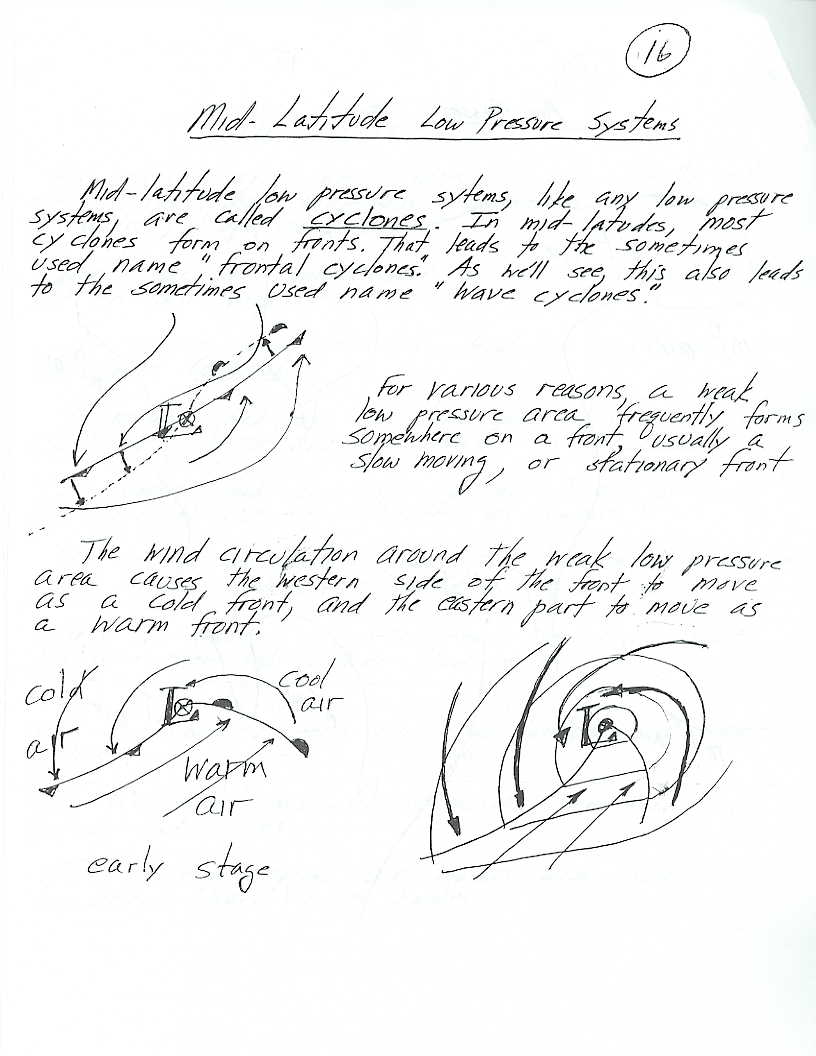 16
Mid-Latitude Low Pressure Systems
Mid-latitude low pressure sytems, like any low pressure
systems, are called cyclones. In mid-latudes, most
cyclones form on fronts. That leads to the sometimes
used name "frontal cyclones." As we'll see, this also leads
to the sometimes used name "wave cyclones."
L
For various reasons, a weak
low pressure area frequently forms
somewhere on a front, usually a
slow moving, or stationary front
The wind circulation around the weak low pressure
area causes the western side of the front to move
as a cold front, and the eastern part to move as
a warm front.
cold
air
L
cool
air
warm
air
early stage
L